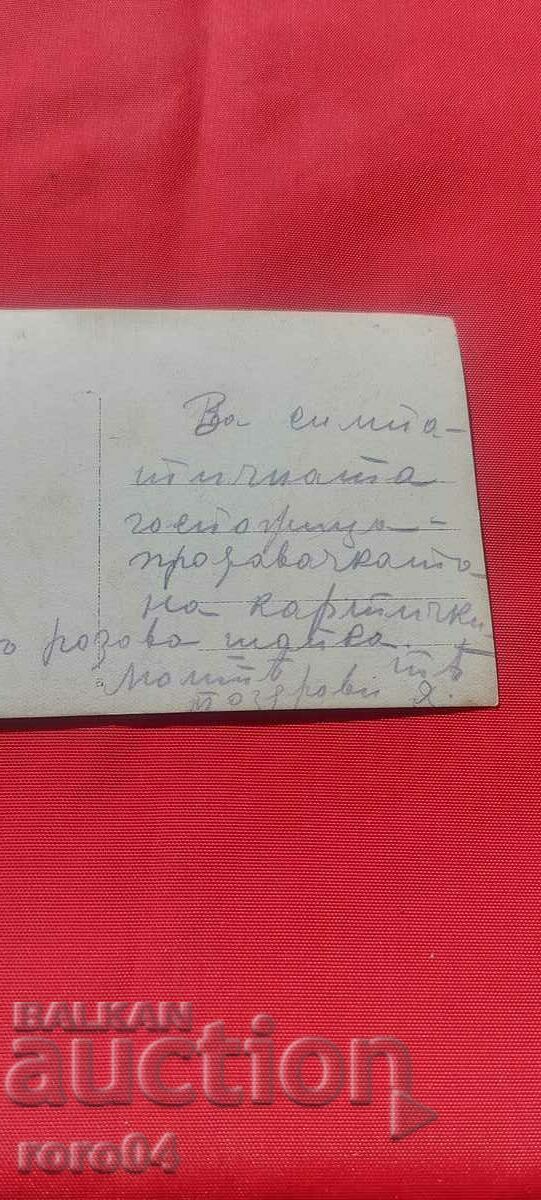 За симпа-
тичната
госпожица-
продавачката
на картички-
ъ розова шапка. тѣ
Моитѣ
поздрави
BALKAN
auction
roro04